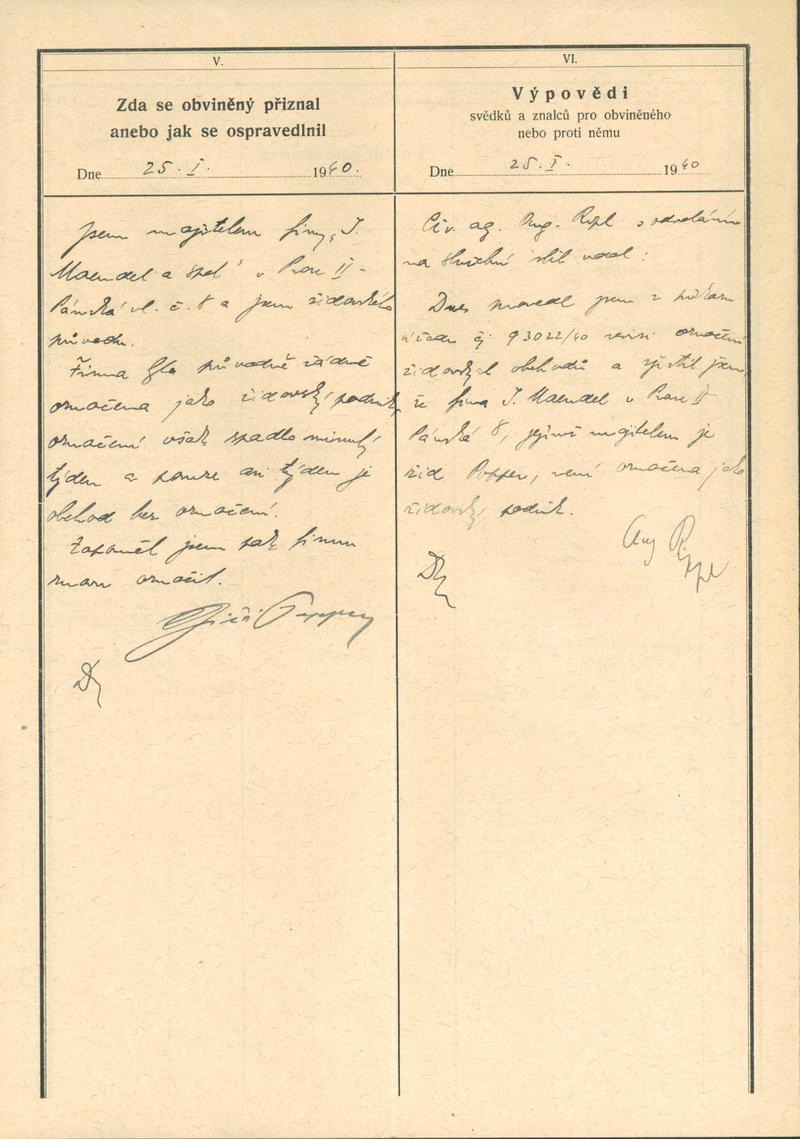 V.
Zda se obviněný přiznal
anebo jak se ospravedlnil
Dne 25. I. 1940.
Jsem majitelem firmy „I.
Maendel a spol“ v Praze II-
Pánská ul. č. 8 a jsem židovského
původu.
Firma byla původně řádně
označena jako židovský podnik,
označení však spadlo minulý
týden a pouze asi týden je
obchod bez označení.
Zapoměl jsem pak firmu
znovu označit.
Jiří Popper
VI.
Výpovědi
svědků a znalců pro obviněného
nebo proti němu
Dne 25. I. 1940
Civ. ag. Aug. Rypl s odvoláním
na služební slib udal:
Dnes provedl jsem z příkazu
úřadu čj 93022/40 revisi označení
židovských obchodů a zjistil jsem,
že firma I. Maendel v Praze II-
Pánská 8, jejímž majitelem je
žid Popper, není označena jako
židovský podnik.
Aug Rypl